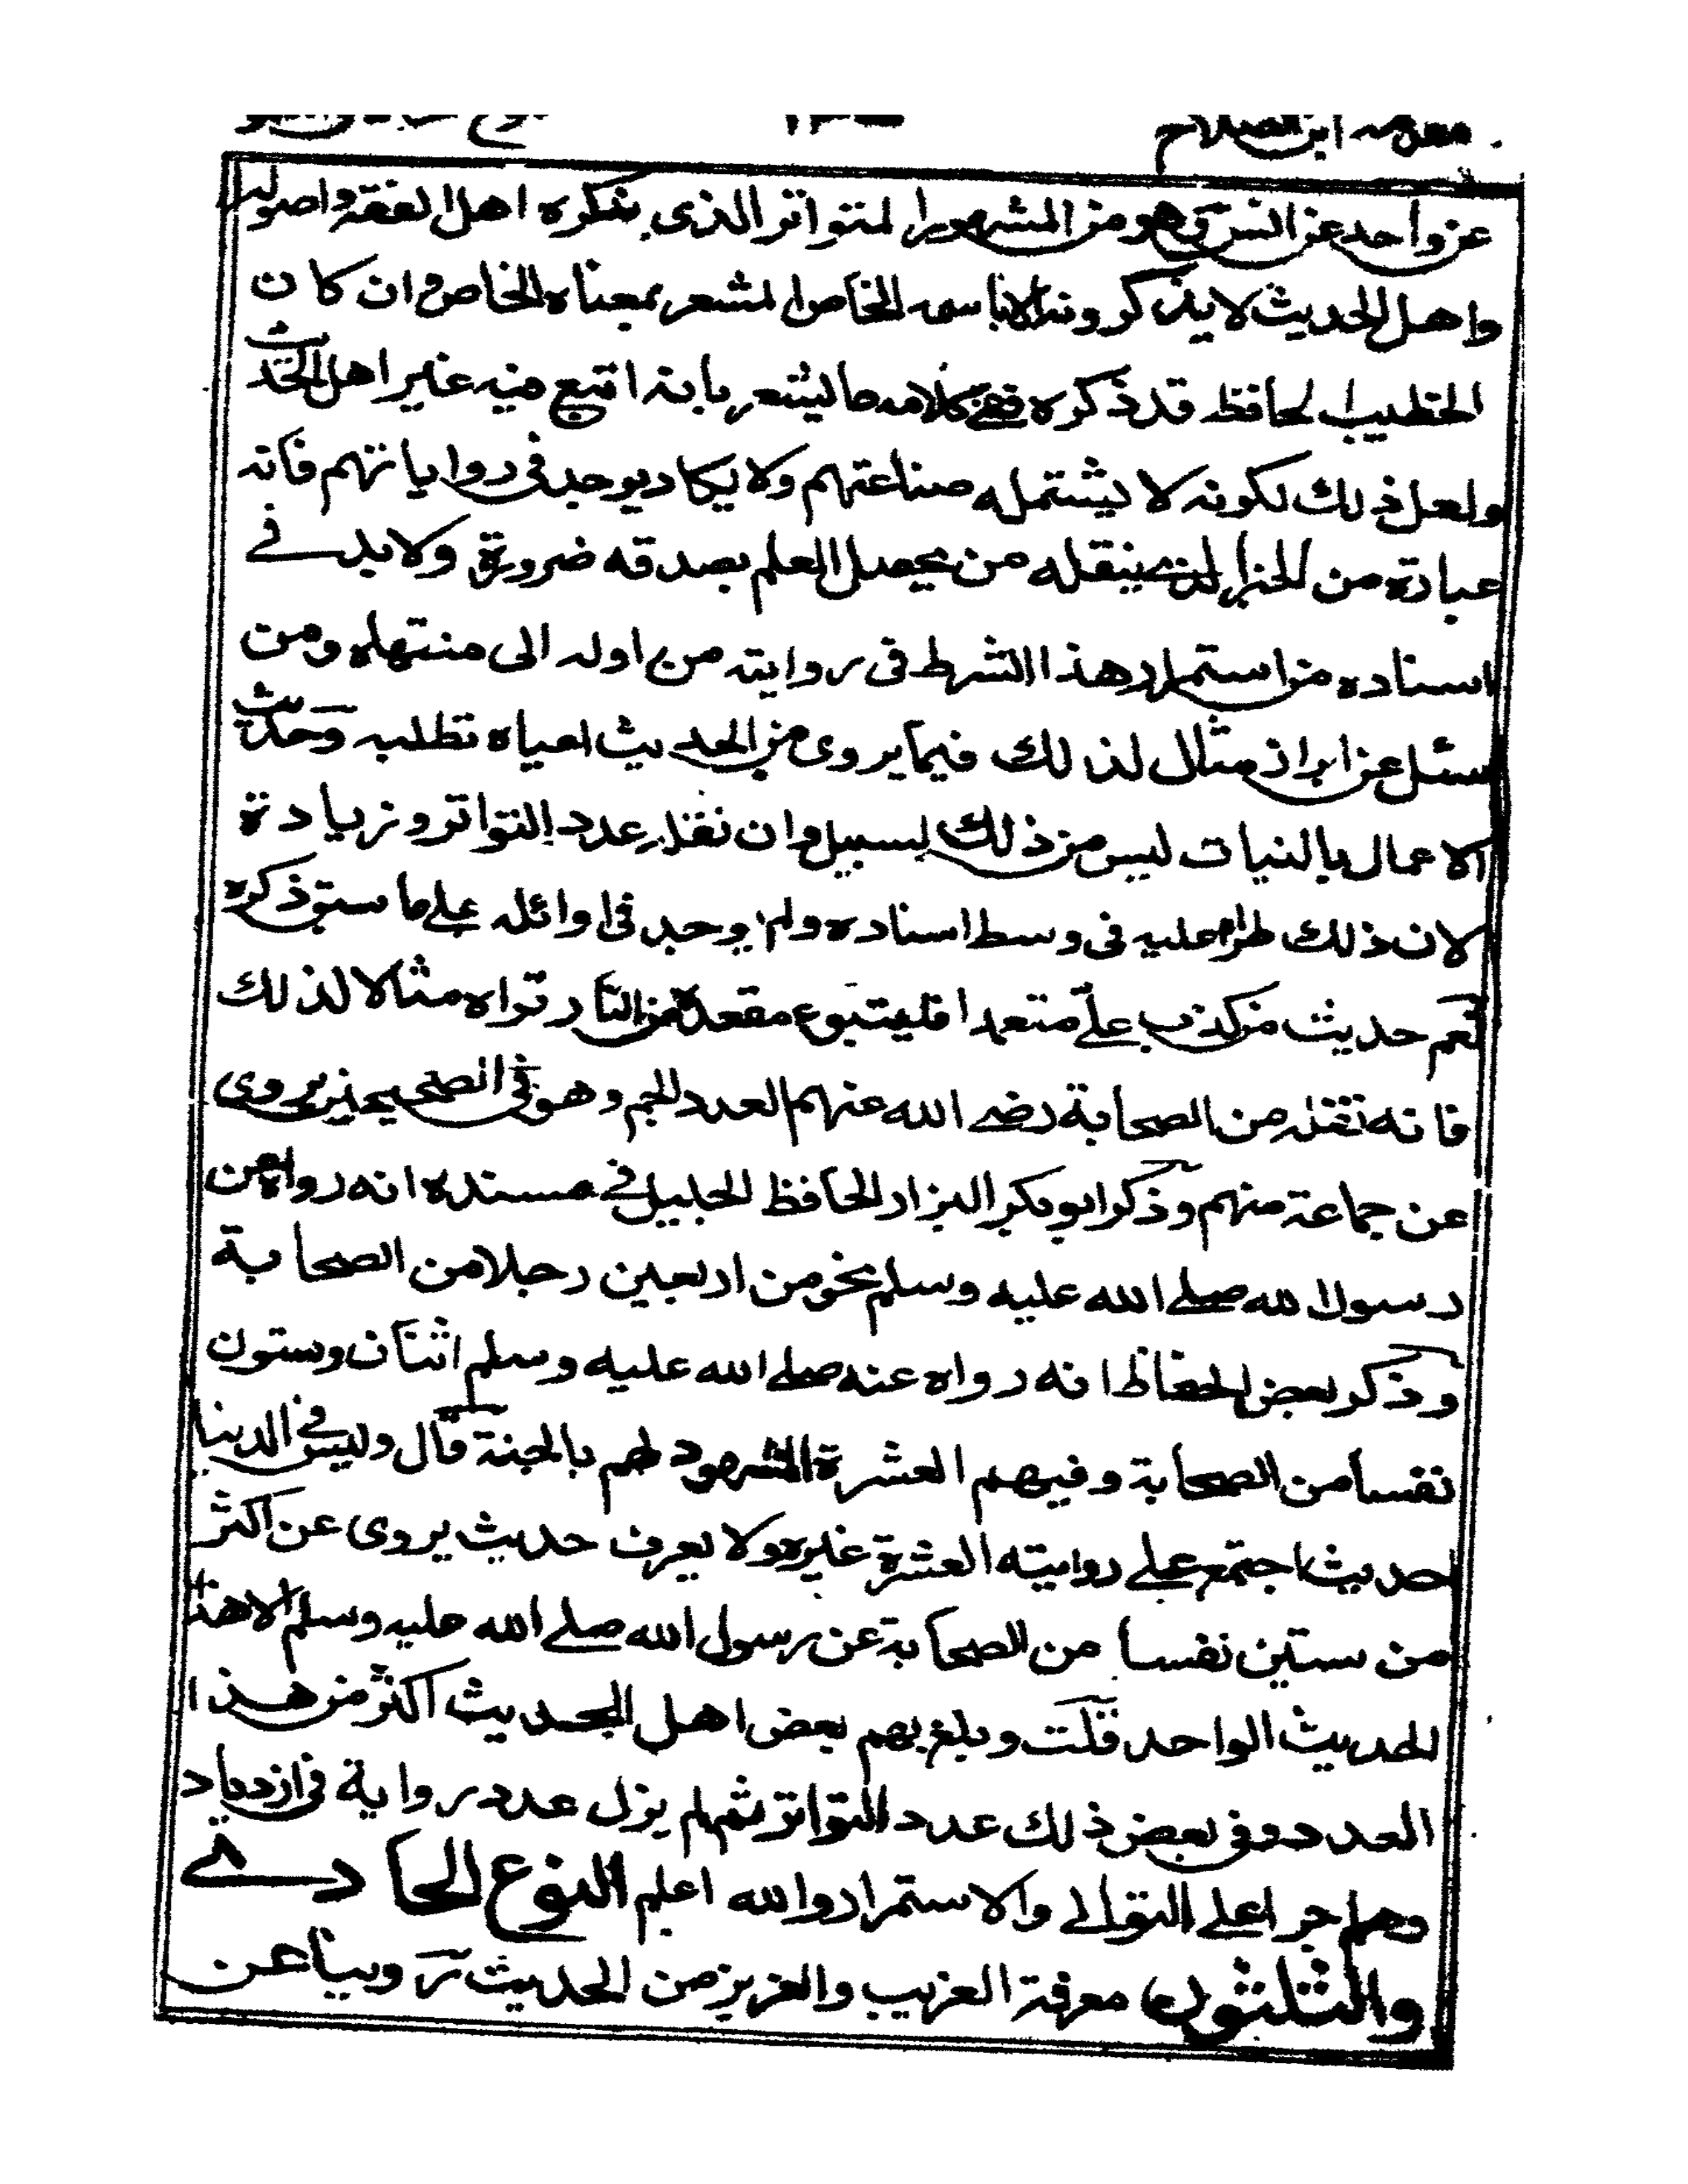 مقدمه ابن الصلاح
عن واحد عن انس ومن المشهور المتواتر الذى يذكره اهل الفقه واصوله
واهل الحديث لا يذكرونه الا باسمه الخاص المشعر بمعناه الخاص وان كان
الخطيب الحافظ قد ذكره ففى كلامه ما يشعر بانه اتبع فيه غير اهل الحديث
ولعل ذلك لكونه لا يشتمله صناعتهم ولا يكاد يوجد فى رواياتهم فانه
عبارة من الخبر الذى ينقله من يحصل العلم بصدقه ضرورة ولا بد فى
اسناده من استمرار هذا الشرط فى روايته من اوله الى منتهاه ومن
سئل عن ابراز مثال لذلك فيما يروى من الحديث اعياه تطلبه وحديث
الاعمال بالنيات ليس من ذلك بسبيل وان نقله عدد التواتر وزيادة
لان ذلك طرا عليه فى وسط اسناده ولم يوجد فى اوائله على ما سبق ذكره
نعم حديث من كذب على متعمدا فليتبوء مقعده من النار تراه مثالا لذلك
فانه نقله من الصحابة رضى الله عنهم العدد الجم وهو فى الصحيحين يروى
عن جماعة منهم وذكر ابو بكر البزار الحافظ الجليل فى مسنده انه رواه عن
رسول الله صلى الله عليه وسلم نحو من اربعين رجلا من الصحابة
وذكر بعض الحفاظ انه رواه عنه صلى الله عليه وسلم اثنان وستون
نفسا من الصحابة وفيهم العشرة المشهود لهم بالجنة قال وليس فى الدنيا
حديث اجتمع على روايته العشرة غيره ولا يعرف حديث يروى عن اكثر
من ستين نفسا من الصحابة عن رسول الله صلى الله عليه وسلم الا هذا
الحديث الواحد قلت وبلغ بهم بعض اهل الحديث اكثر من هذا
العدد وفى بعض ذلك عدد التواتر ثم لم يزل عدد رواية فى ازدياد
وهلم جرا على التوالى والاستمرار والله اعلم النوع الحادى
والثلثون معرفة الغريب والعزيز من الحديث روينا عن